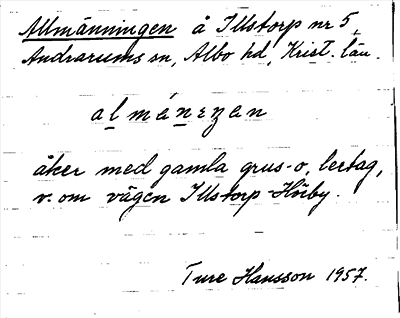 Allmänningen å Illstorp nr 5
Andrarums sn, Albo hd, Krist. län.
almäneŋen
åker med gamla grus- o. lertag,
v. om vägen Illstorp-Hörby.
Ture Hansson 1957.